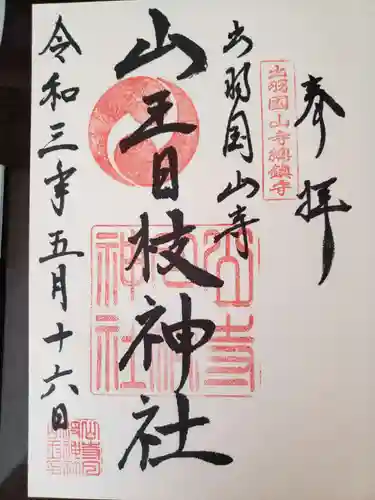 奉拝
出羽國山寺總鎮守
出羽国山寺
山王日枝神社
山寺
神社
令和三年五月十六日